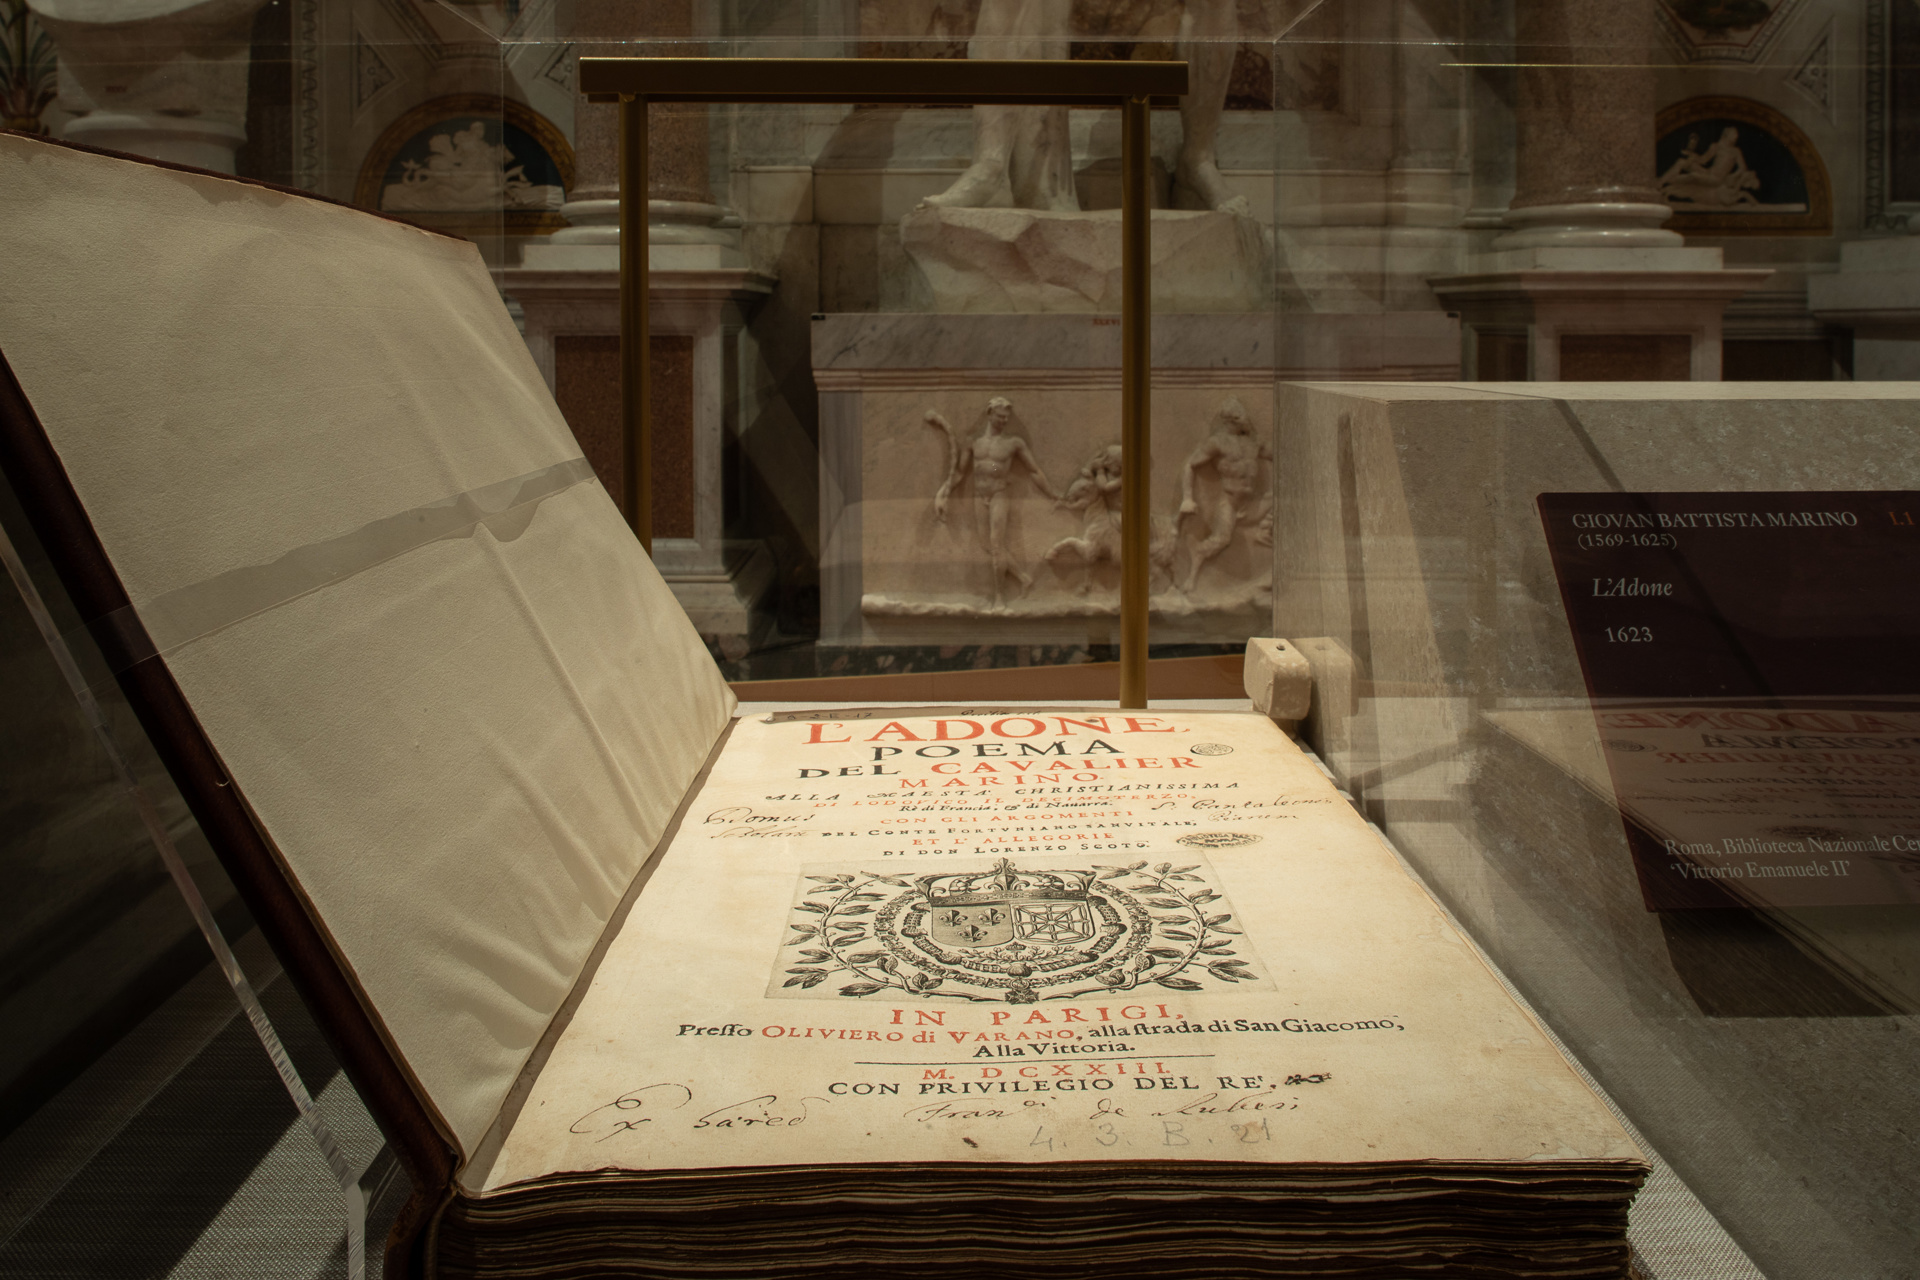 L'ADONE,
POEMA
DEL CAVALIER
MARINO.
ALLA MAESTA' CHRISTIANISSIMA
DI LODOVICO IL DECIMOTERZO,
Rè di Francia, & di Nauarra.
CON GLI ARGOMENTI
DEL CONTE FORTVNIANO SANVITALE,
ET L'ALLEGORIE
DI DON LORENZO SCOTO.
Domus
S. Pantaleonis
IN PARIGI,
Preſſo OLIVIERO di VARANO, alla ſtrada di San Giacomo,
Alla Vittoria.
M. DCXXIII.
CON PRIVILEGIO DEL RE'.
Ex
de Rubeis
4. 3. B. 21
GIOVAN BATTISTA MARINO I.1
(1569-1625)
L'Adone
1623
Roma, Biblioteca Nazionale Ce
'Vittorio Emanuele II'